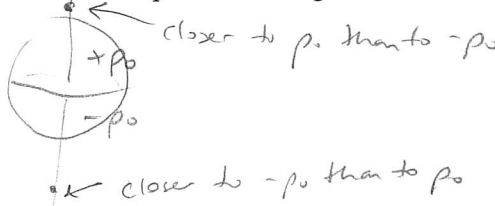 closer to ρ₀ than to -ρ₀
+ρ₀
-ρ₀
closer to -ρ₀ than to ρ₀